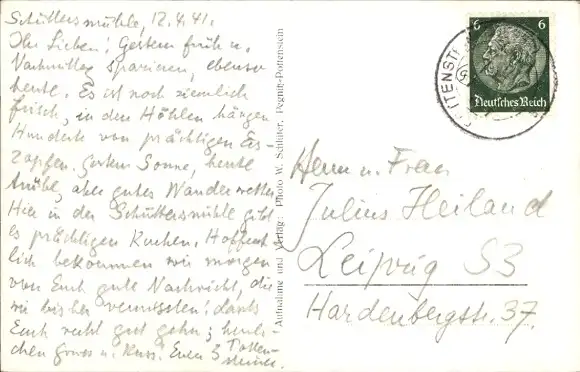 Schüttersmühle, 12.4.41.
Ihr Lieben! Gestern früh u.
Nachmittag spazieren, ebenso
heute. Es ist noch ziemlich
frisch, in den Höhlen hängen
Hunderte von prächtigen Eis-
Zapfen. Gestern Sonne, heute
trübe, aber gutes Wanderwetter.
Hier in der Schüttersmühle gibt
es prächtigen Kuchen. Hoffent-
lich bekommen wir morgen
von Euch gute Nachricht, die
wir bisher vermissten!
Euch recht gut gehn; herzli-
chen Gruss u. Kuss. Eure 3 Potten-
steiner.
Aufnahme und Verlag: Photo W. Schlüter, Pegnitz-Pottenstein
6 6
Deutsches Reich
Herrn u. Frau
Julius Heiland
Leipzig S3
Hardenbergstr. 37.